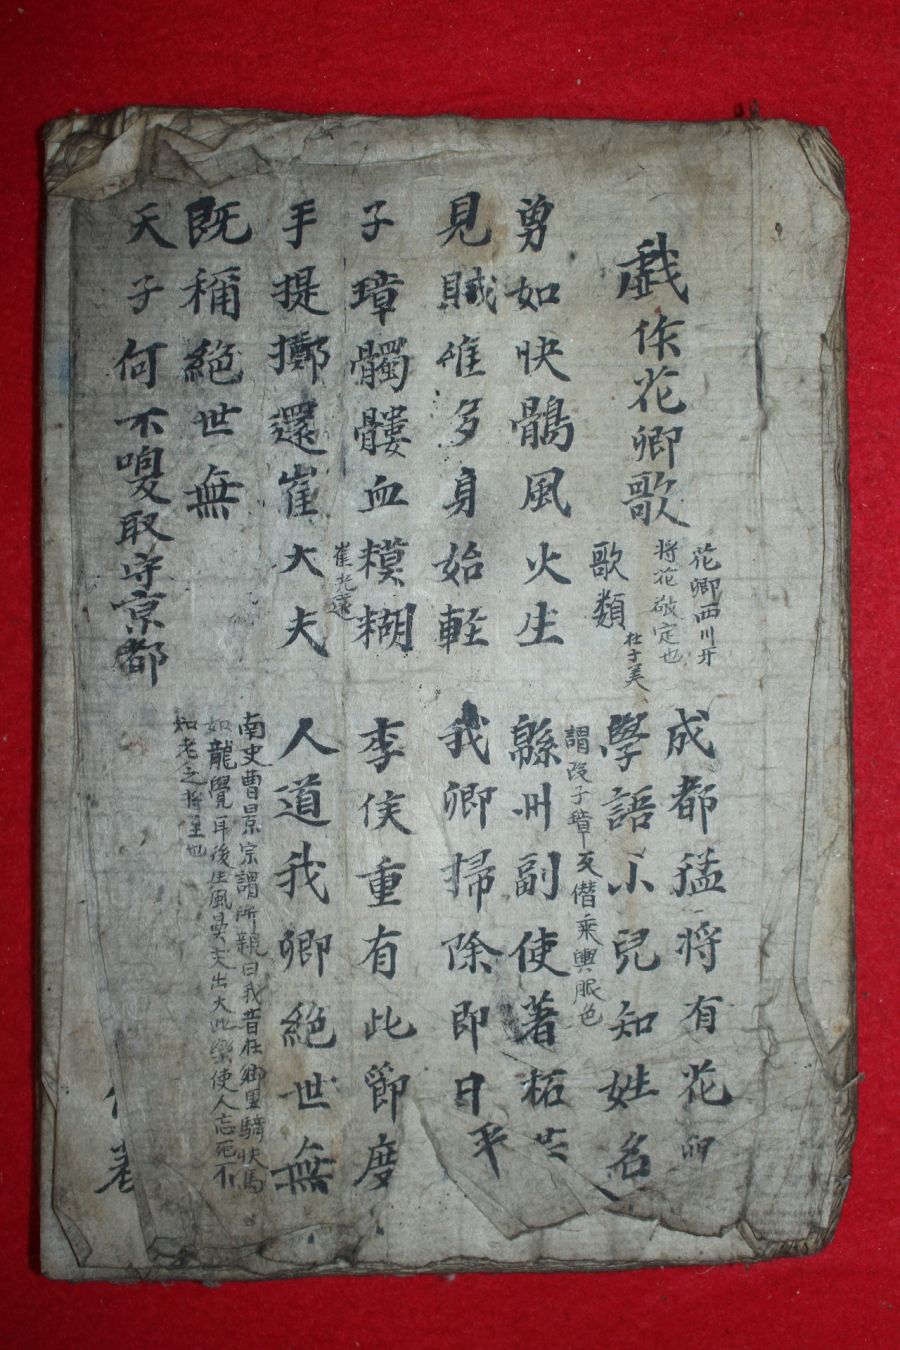 戱作花卿歌
花卿西川牙
將花敬定也
歌類
杜子美
成都猛將有花卿
學語小兒知姓名
勇如快鶻風火生
見賊惟多身始輕
謂段子璋反僭乘輿服色
緜州副使著柘
我卿掃除即日平
子璋髑髏血糢糊
崔光遠
手提擲還崔大夫
李侯重有此節度
人道我卿絶世無
既稱絶世無
天子何不喚取守京都
南史曹景宗謂所親曰我昔在鄕里騎快馬
如龍覺耳後生風鼻尖出火此樂使人忘死不
知老之將至也